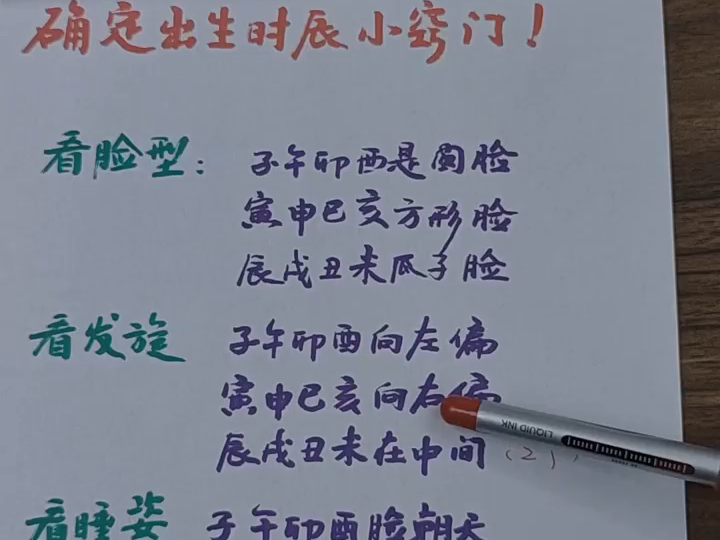 确定出生时辰小窍门！
看脸型：子午卯酉是圆脸
寅申巳亥方形脸
辰戌丑未瓜子脸
看发旋 子午卯酉向左偏
寅申巳亥向右偏
辰戌丑未在中间（2）
LIQUID INK
看睡姿 子午卯酉脸朝天